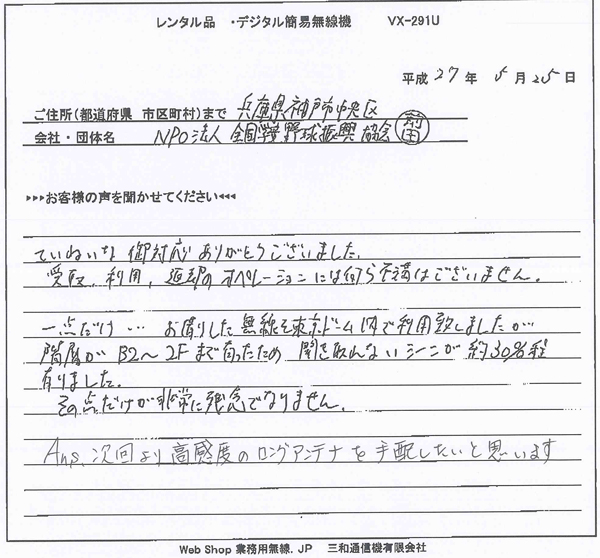 レンタル品 ・デジタル簡易無線機 VX-291U
平成 27 年 5 月 25 日
ご住所(都道府県 市区町村)まで 兵庫県神戸市中央区
会社・団体名 NPO法人 全国学童野球振興協会 前田
▸▸▸お客様の声を聞かせてください◂◂◂
ていねいな御対応ありがとうございました。
受取、利用、返却のオペレーションには何ら不満はございません。
一点だけ… お借りした無線を東京ドーム内で利用致しましたが
階層がB2～2Fまで有ったため 聞き取れないシーンが約30%程
有りました。
その点だけが非常に残念でなりません。
Ans. 次回より高感度のロングアンテナを手配したいと思います
Web Shop 業務用無線.JP 三和通信機有限会社